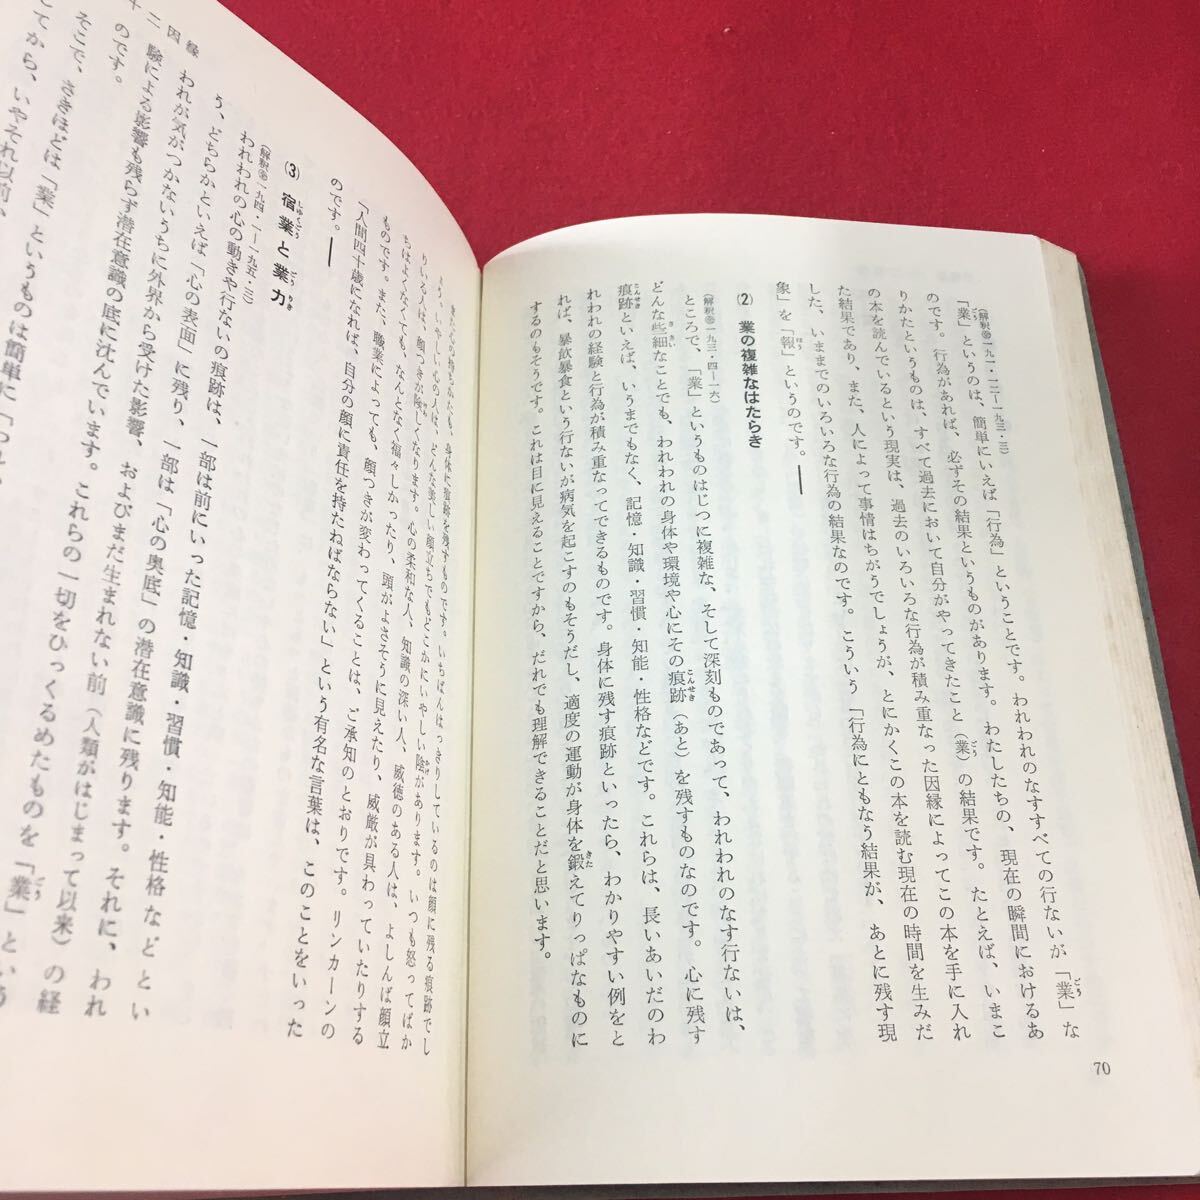 (解釈㊄一九一・一二―一九三・三)
「業」というのは、簡単にいえば「行為」ということです。われわれのなすすべての行ないが「業」な
のです。行為があれば、必ずその結果というものがあります。わたしたちの、現在の瞬間におけるあ
りかたというものは、すべて過去において自分がやってきたこと(業)の結果です。たとえば、いまこ
の本を読んでいるという現実は、過去のいろいろな行為が積み重なった因縁によってこの本を手に入れ
た結果であり、また、人によって事情はちがうでしょうが、とにかくこの本を読む現在の時間を生みだ
した、いままでのいろいろな行為の結果なのです。こういう「行為にともなう結果が、あとに残す現
象」を「報」というのです。――
(2) 業の複雑なはたらき
(解釈㊄一九三・四―一六)
ところで、「業」というものはじつに複雑な、そして深刻ものであって、われわれのなす行ないは、
どんな些細なことでも、われわれの身体や環境や心にその痕跡(あと)を残すものなのです。心に残す
痕跡といえば、いうまでもなく、記憶・知識・習慣・知能・性格などです。これらは、長いあいだのわ
れわれの経験と行為が積み重なってできるものです。身体に残す痕跡といったら、わかりやすい例をと
れば、暴飲暴食という行ないが病気を起こすのもそうだし、適度の運動が身体を鍛えてりっぱなものに
するのもそうです。これは目に見えることですから、だれでも理解できることだと思います。
70
十二因縁
また心の持ちかたも、身体に痕跡を残すものです。いちばんはっきりしているのは顔に残る痕跡でし
ょう。いやしい心の人は、どんな美しい顔立ちでもどこかにいやしい陰があります。いつも怒ってばか
りいる人は、顔つきが険しくなります。心の柔和な人、知識の深い人、威徳のある人は、よしんば顔立
ちはよくなくても、なんとなく福々しかったり、頭がよさそうに見えたり、威厳が具わっていたりする
ものです。また、職業によっても、顔つきが変わってくることは、ご承知のとおりです。リンカーンの
「人間四十歳になれば、自分の顔に責任を持たねばならない」という有名な言葉は、このことをいった
のです。――
(3) 宿業と業力
(解釈㊄一九四・一―一九五・三)
われわれの心の動きや行ないの痕跡は、一部は前にいった記憶・知識・習慣・知能・性格などとい
う、どちらかといえば「心の表面」に残り、一部は「心の奥底」の潜在意識に残ります。それに、われ
われが気がつかないうちに外界から受けた影響、およびまだ生まれない前(人類がはじまって以来)の経
験による影響も残らず潜在意識の底に沈んでいます。これらの一切をひっくるめたものを「業」という
のです。
そこで、さきほどは「業」というものは簡単に
してから、いやそれ以前、